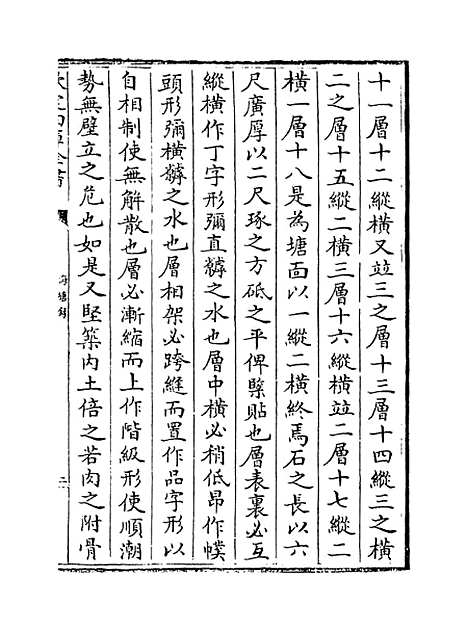 十一層十二縱橫又竝三之層十三層十四縱三之橫
二之層十五縱二橫三層十六縱橫竝二層十七縱二
橫一層十八是為塘面以一縱二橫終焉石之長以六
尺廣厚以二尺琢之方砥之平俾㮣貼也層表裏必互
縱橫作丁字形彌直罅之水也層中橫必稍低昂作幞
頭形彌橫罅之水也層相架必跨縫而置作品字形以
自相制使無解散也層必漸縮而上作階級形使順潮
勢無壁立之危也如是又堅築内土倍之若肉之附骨
欽定四庫全書
海塘錄
二